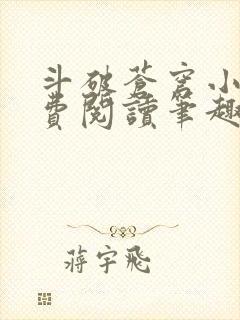 斗破苍穹小
费阅读笔趣
蒋宇飞